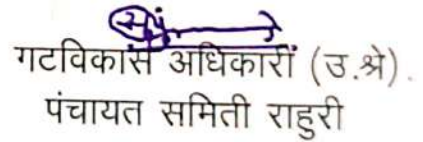 गटविकास अधिकारी (उ.श्रे).
पंचायत समिती राहुरी